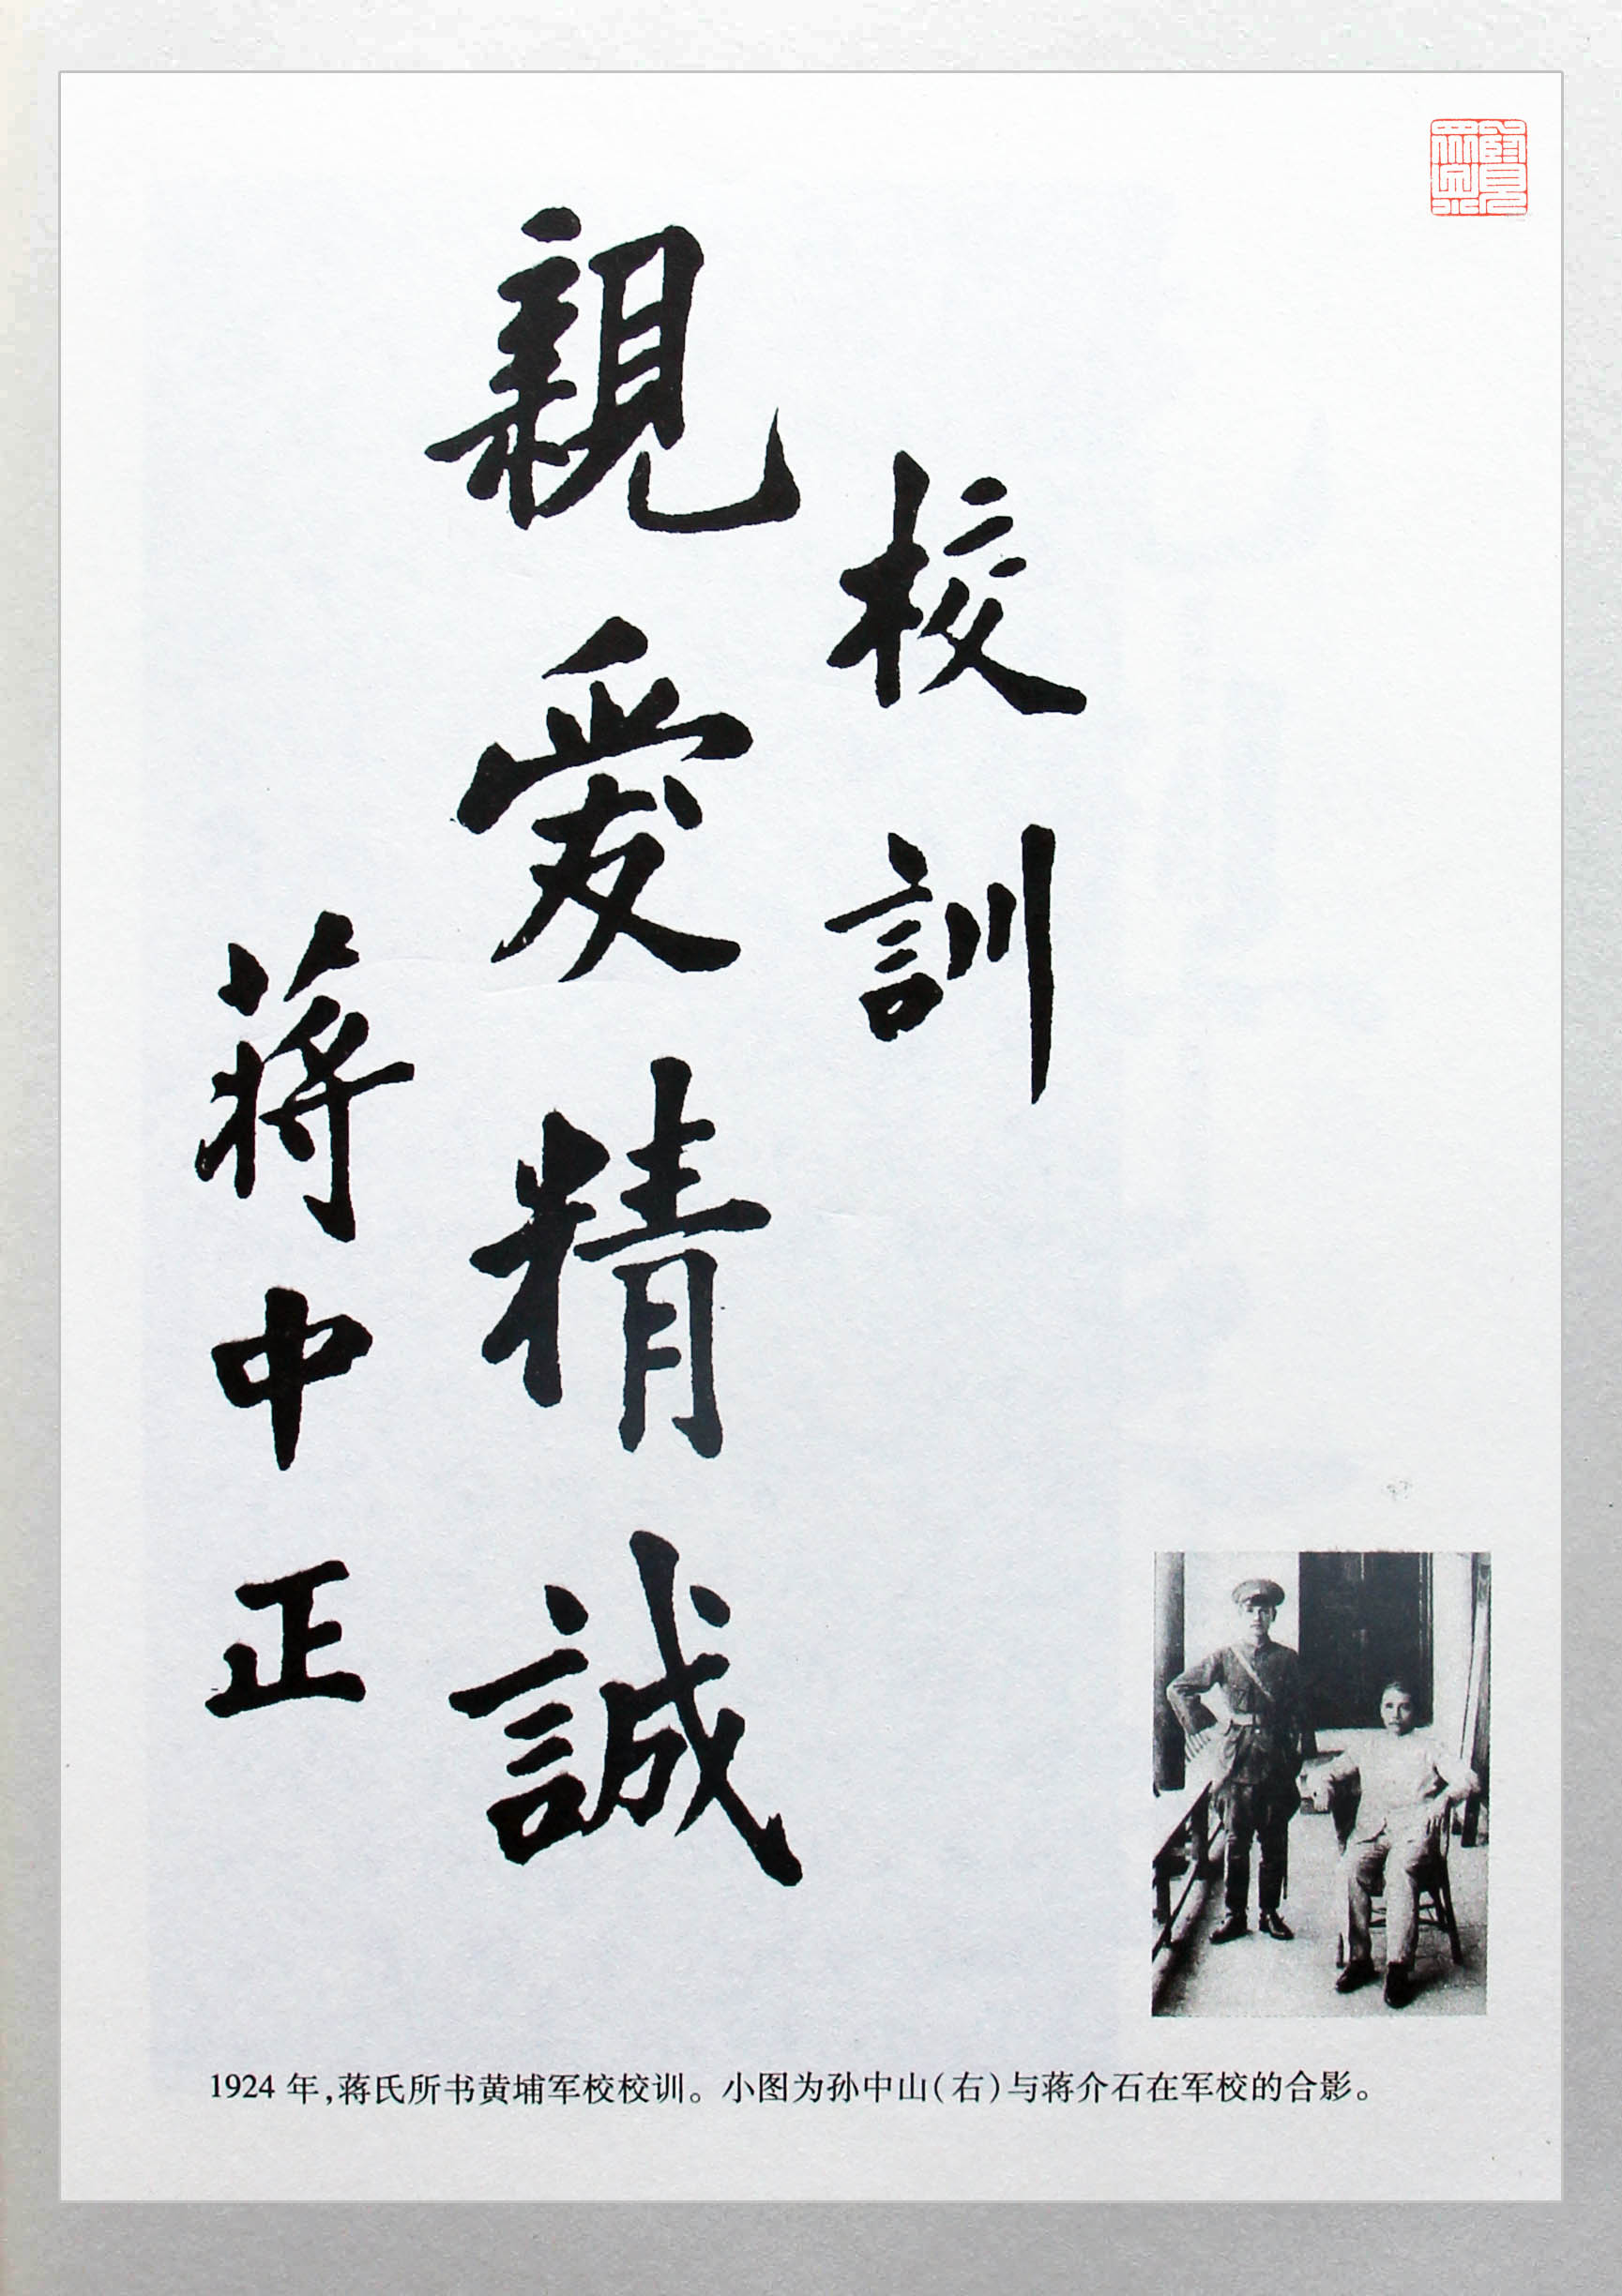 校訓
親愛精誠
蔣中正
1924 年,蒋氏所书黄埔军校校训。小图为孙中山(右)与蒋介石在军校的合影。